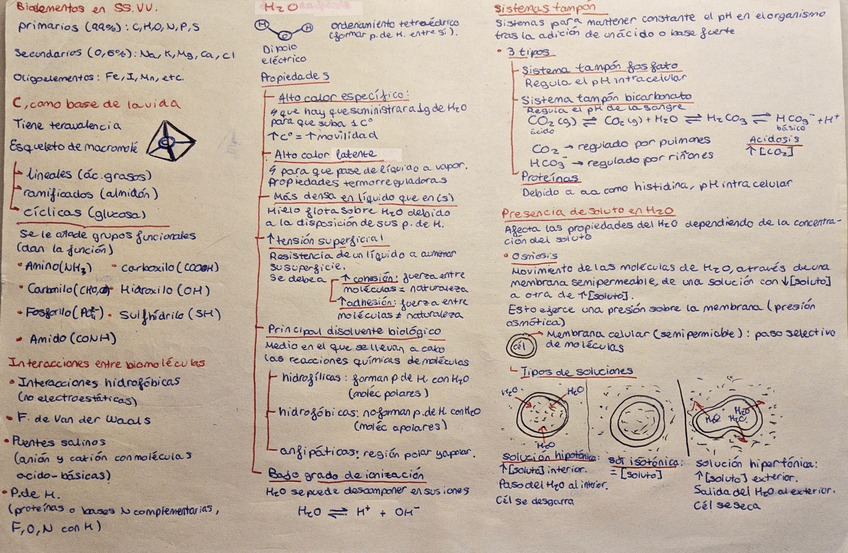 Bialementos en SS.VV.
primarios (99%): C,H,O,N,P,S
Secundarios (0,6%): Na, K, Mg, Ca, Cl
Oligoelementos: Fe, I, Mn, etc.
C, como base de la vida
Tiene tetravalencia
Esqueleto de macromolé
C
lineales (ác.grasos)
ramificados (almidón)
cíclicas (glucosa)
Se le añade grupos funcionales
(dan la función)
• Amino (NH₂) • carboxilo (COOH)
• Carbonilo (CHO,O) • Hidroxilo (OH)
• Fosforilo (PO₄²⁻) • Sulfhídrilo (SH)
• Amido (CONH)
Interacciones entre biomoléculas
• Interacciones hidrofóbicas
(no electroestáticas)
• F. de Van der Waals
• Puentes salinos
(anión y catión con moléculas
acido-básicas)
• P.de H.
(proteínas o bases N complementarias,
F, O, N con H)
H₂O
H O H
ordenamiento tetraédrico
(formar p. de H. entre sí).
Dipolo
eléctrico
Propiedades
Alto calor específico:
que hay que suministrar a 1g de H₂O
para que suba 1 C°
↑C° = ↑movilidad
Alto calor latente
para que pase de líquido a vapor.
Propiedades termorreguladoras
Más densa en líquido que en (s)
Hielo flota sobre H₂O debido
a la disposición de sus p. de H.
↑tensión superficial
Resistencia de un líquido a aumentar
su superficie.
Se debe a
↑cohesión: fuerza entre
moléculas = naturaleza
↑adhesión: fuerza entre
moléculas ≠ naturaleza
Principal disolvente biológico
Medio en el que se llevan a cabo
las reacciones químicas de moléculas
hidrofílicas: forman p de H. con H₂O
(moléc polares)
hidrofóbicas: no forman p. de H. con H₂O
(moléc apolares)
anfipáticas: región polar y apolar.
Bajo grado de ionización
H₂O se puede descomponer en sus iones
H₂O ⇌ H⁺ + OH⁻
Sistemas tampón
Sistemas para mantener constante el pH en el organismo
tras la adición de un ácido o base fuerte
• 3 tipos
Sistema tampón fosfato
Regula el pH intracelular
Sistema tampón bicarbonato
Regula el pH de la sangre
CO₂ (g) ⇌ CO₂ (g) + H₂O ⇌ H₂CO₃ ⇌ HCO₃⁻ + H⁺
ácido básico
CO₂ → regulado por pulmones
HCO₃⁻ → regulado por riñones
Acidosis
↑[CO₂]
Proteínas
Debido a aa como histidina, pH intracelular
Presencia de soluto en H₂O
Afecta las propiedades del H₂O dependiendo de la concentra-
ción del soluto
• Osmosis
Movimiento de las moléculas de H₂O, através de una
membrana semipermeable, de una solución con ↓[soluto]
a otra de ↑[soluto].
Esto ejerce una presión sobre la membrana (presión
osmótica)
cél
Membrana celular (semipermiable): paso selectivo
de moléculas
Tipos de soluciones
H₂O H₂O
H₂O
H₂O H₂O
H₂O
solución hipotónica:
↑[soluto] interior.
Paso del H₂O al interior.
Cél se desgarra
sol isotónica:
= [soluto]
solución hipertónica:
↑[soluto] exterior.
Salida del H₂O al exterior.
Cél se seca